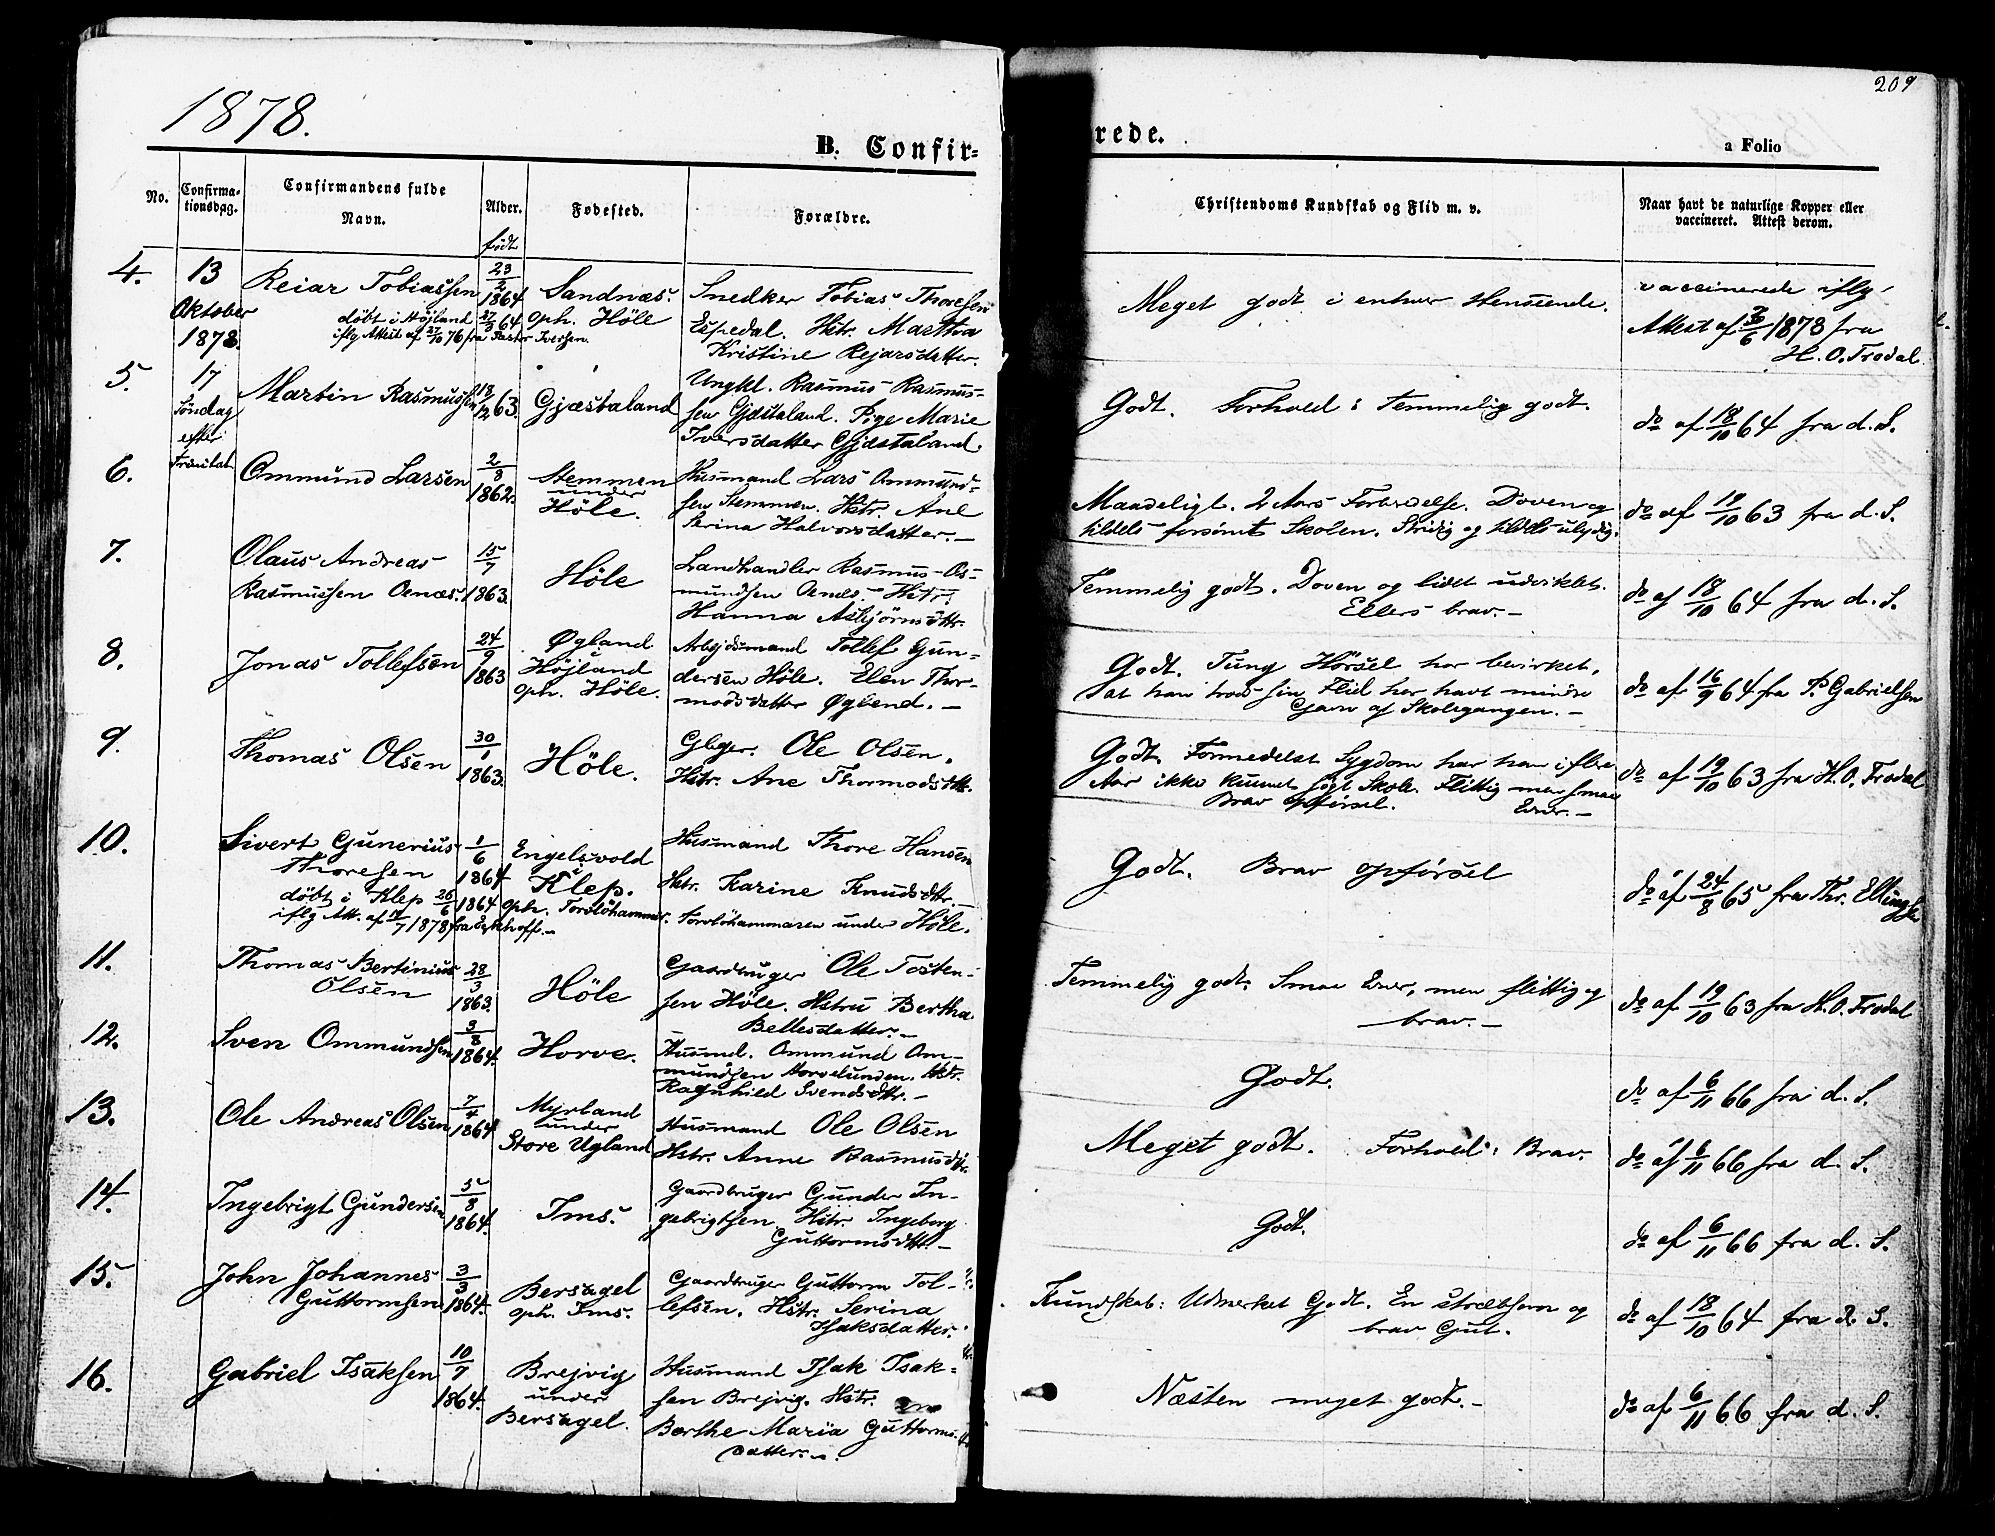 1878.
209
B. Confir=
rede.
a Folio
No.
Confirma-
tionsdag.
Confirmandens fulde
Navn.
Alder.
Fødested.
Forældre.
Christendoms Kundskab og Flid m. v.
Naar havt de naturlige Kopper eller
vaccineret. Attest derom.
født
4.
13
Oktober
1878.
Reiar Tobiassen
døbt i Højland 27/3 64.
iflg Attest af 27/10 76 fra Pastor Iversen.
23/2
1864
Sandnæs.
oph. Höle
Snedker Tobias Thoresen
Espedal. Hstr. Martha
Kristine Rejarsdatter.
Meget godt i enhver Henseende.
vaccinerede iflg
Attest af 1878 fra
H. O. Trodal
5.
17
Søndag
efter
Trinitat.
Martin Rasmussen
13/12 63.
Gjæstaland
Ungkl. Rasmus Rasmus-
sen Gjæstaland. Pige Marie
Iversdatter Gjæstaland.
Godt. Forhold: Temmelig godt.
do af 18/10 64 fra d. S.
6.
Ommund Larsen
2/8
1862.
Stemmen
under
Höle.
Husmand Lars Ommund-
sen Stemmen. Hstr. Ane
Serina Halvorsdatter.-
Maadeligt. 2 Aars Forberedelse. Doven og
tildels forsömt Skolen. Stridig og tildels ulydig.
do af 19/10 63 fra d. S.
7.
Olaus Andreas
Rasmussen Oenæs.
15/7
1863.
Höle
Landhandler Rasmus Os-
mundsen Oenes.- Hstr.
Hanna Asbjörnsdttr.
Temmelig godt. Doven og lidet udviklet.
Ellers brav.-
do af 18/10 64 fra d. S.
8.
Jonas Tollefsen
24/9
1863
Øgland
i
Højland
oph. Höle.
Arbejdsmand Tollef Gun-
dersen Höle. Elen Thor-
modsdatter Øglend.-
Godt. Tung Hörsel har bevirket,
at han trods sin Flid har havt mindre
Gavn af Skolegangen.-
do af 16/9 64 fra P. Gabrielsen
9.
Thomas Olsen
30/1
1863.
Höle.
Gbger. Ole Olsen.
Hstr. Ane Thormodsdttr.
Godt. Formedelst Sygdom har han i flere
Aar ikke kunnet søgt Skole. Flittig men smaa
Brav opførsel. Evner.-
do af 19/10 63 fra H. O. Trodal
10.
Sivert Gunerius
Thoresen
døbt i Klep 26/6 1864
iflg Att. af 14/7 1878 fra
1/6
1864
Engelsvold
i
Klep.
oph. Torslöhammer.
Husmand Thore Hansen
Hstr. Karine Knudsdttr.-
Torslöhammaren under Höle.
Godt. Brav opförsel
do af 24/8 65 fra Thr. Ellingsen
11.
Thomas Bertinius
Olsen
28/3
1863.
Höle
Gaardbruger Ole Tosten-
sen Höle. Hstru Bertha
Bellesdatter.-
Temmelig godt. Smaa Evner, men flittig og
brav.-
do af 19/10 63 fra H. O. Trodal
12.
Sven Ommundsen
3/8
1864.
Horve.
Husmd. Ommund Om-
mundsen Horvelunden. Hstr.
Ragnhild Svendsdttr.-
Godt.
do af 6/11 66 fra d. S.
13.
Ole Andreas Olsen
7/4
1864.
Myrland
under
Store Ugland
Husmand Ole Olsen
Hstr. Anne Rasmusdttr.
Meget godt. Forhold: Brav.
do af 6/11 66 fra d. S.
14.
Ingebrigt Gundersen
5/8
1864.
Ims.
Gaardbruger Gunder In-
gebrigtsen Hstr. Ingeborg
Guttormsdttr.-
Godt.
do af 6/11 66 fra d. S.
15.
John Johannes
Guttormsen
3/3
1864.
Bersagel
oph. Ims.
Gaardbruger Guttorm Tol-
lefsen. Hstr. Serina
Isaksdatter.
Kundskab: Udmerket Godt. En stræbsom og
brav Gut.
do af 18/10 64 fra d. S.
16.
Gabriel Isaksen
10/7
1864.
Brejvig
under
Bersagel.
Husmand Isak Isak-
sen Brejvig. Hstr.
Berthe Maria Guttorms-
datter.-
Næsten meget godt.-
do af 6/11 66 fra d. S.